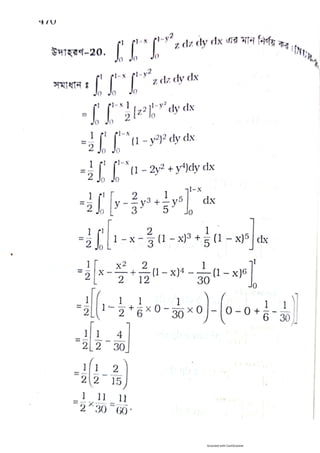 470
উদাহরণ-20. ∫₀¹ ∫₀^{1-x} ∫₀^{1-y²} z dz dy dx এর মান নির্ণয় কর।
সমাধান ঃ ∫₀¹ ∫₀^{1-x} ∫₀^{1-y²} z dz dy dx
= ∫₀¹ ∫₀^{1-x} 1/2 [z²]₀^{1-y²} dy dx
= 1/2 ∫₀¹ ∫₀^{1-x} (1 - y²)² dy dx
= 1/2 ∫₀¹ ∫₀^{1-x} (1 - 2y² + y⁴)dy dx
= 1/2 ∫₀¹ [y - 2/3 y³ + 1/5 y⁵]₀^{1-x} dx
= 1/2 ∫₀¹ [1 - x - 2/3 (1 - x)³ + 1/5 (1 - x)⁵] dx
= 1/2 [x - x²/2 + 2/12 (1 - x)⁴ - 1/30 (1 - x)⁶]₀¹
= 1/2 [(1 - 1/2 + 1/6 × 0 - 1/30 × 0) - (0 - 0 + 1/6 - 1/30)]
= 1/2 [1/2 - 4/30]
= 1/2 (1/2 - 2/15)
= 1/2 × 11/30 = 11/60.
Scanned with CamScanner